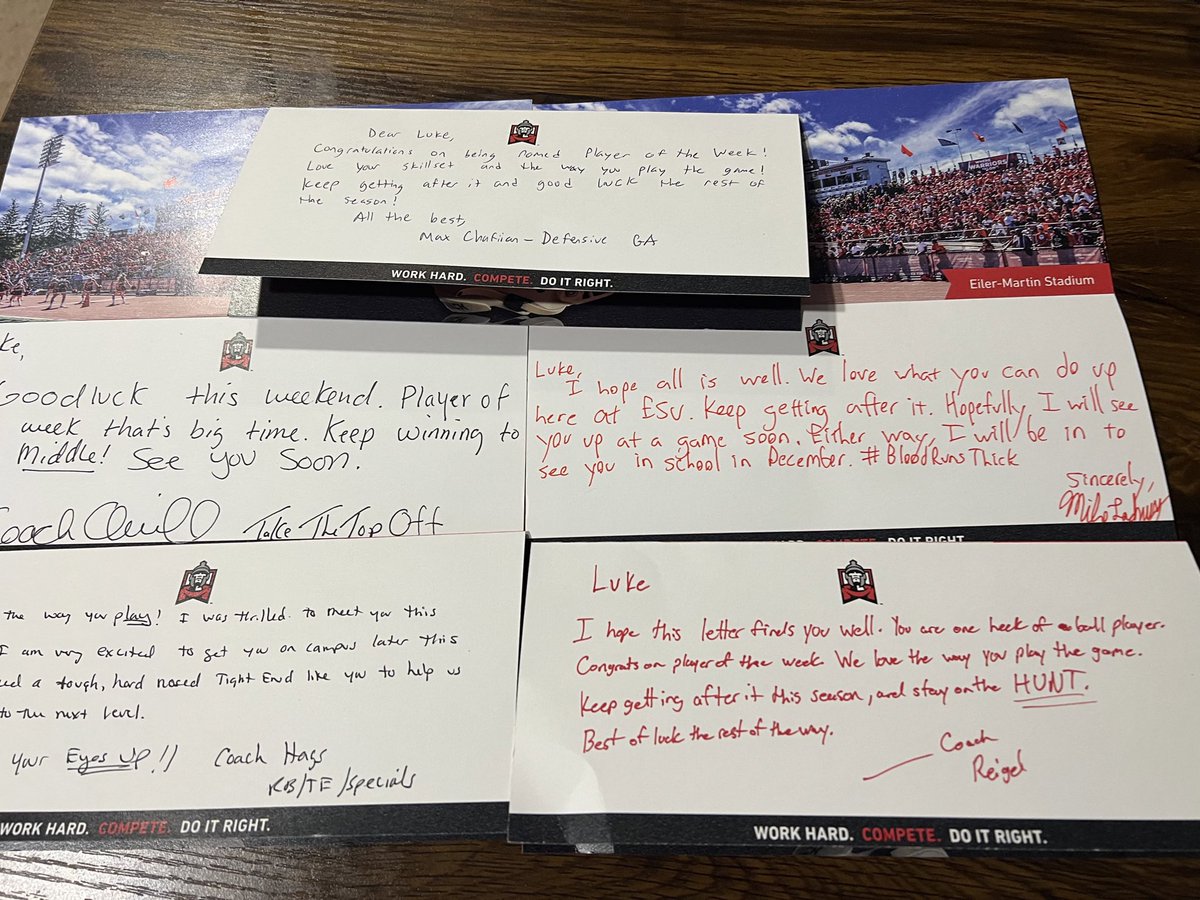 Dear Luke,
Congratulations on being named Player of the Week!
Love your skillset and the way you play the game!
Keep getting after it and good luck the rest of
the season!
All the best,
Max Chafiian - Defensive GA
WORK HARD. COMPETE. DO IT RIGHT.
WARRIORS
Eiler-Martin Stadium
ke,
Goodluck this weekend. Player of
week that's big time. Keep winning to
middle! See you soon.
Coach
Take The Top Off
Luke,
I hope all is well. We love what you can do up
here at ESU. Keep getting after it. Hopefully, I will see
you up at a game soon. Either way, I will be in to
see you in school in December. #BloodRunsThick
Sincerely,
COMPETE. DO IT RIGHT.
the way you play! I was thrilled to meet you this
I am very excited to get you on campus later this
ed a tough, hard nosed Tight End like you to help us
to the next level.
your Eyes up!! Coach Hags
RB/TE/specials
WORK HARD. COMPETE. DO IT RIGHT.
Luke
I hope this letter finds you well. You are one heck of a ball player.
Congrats on player of the week. We love the way you play the game.
Keep getting after it this season, and stay on the HUNT.
Best of luck the rest of the way.
Coach
Reigel
WORK HARD. COMPETE. DO IT RIGHT.